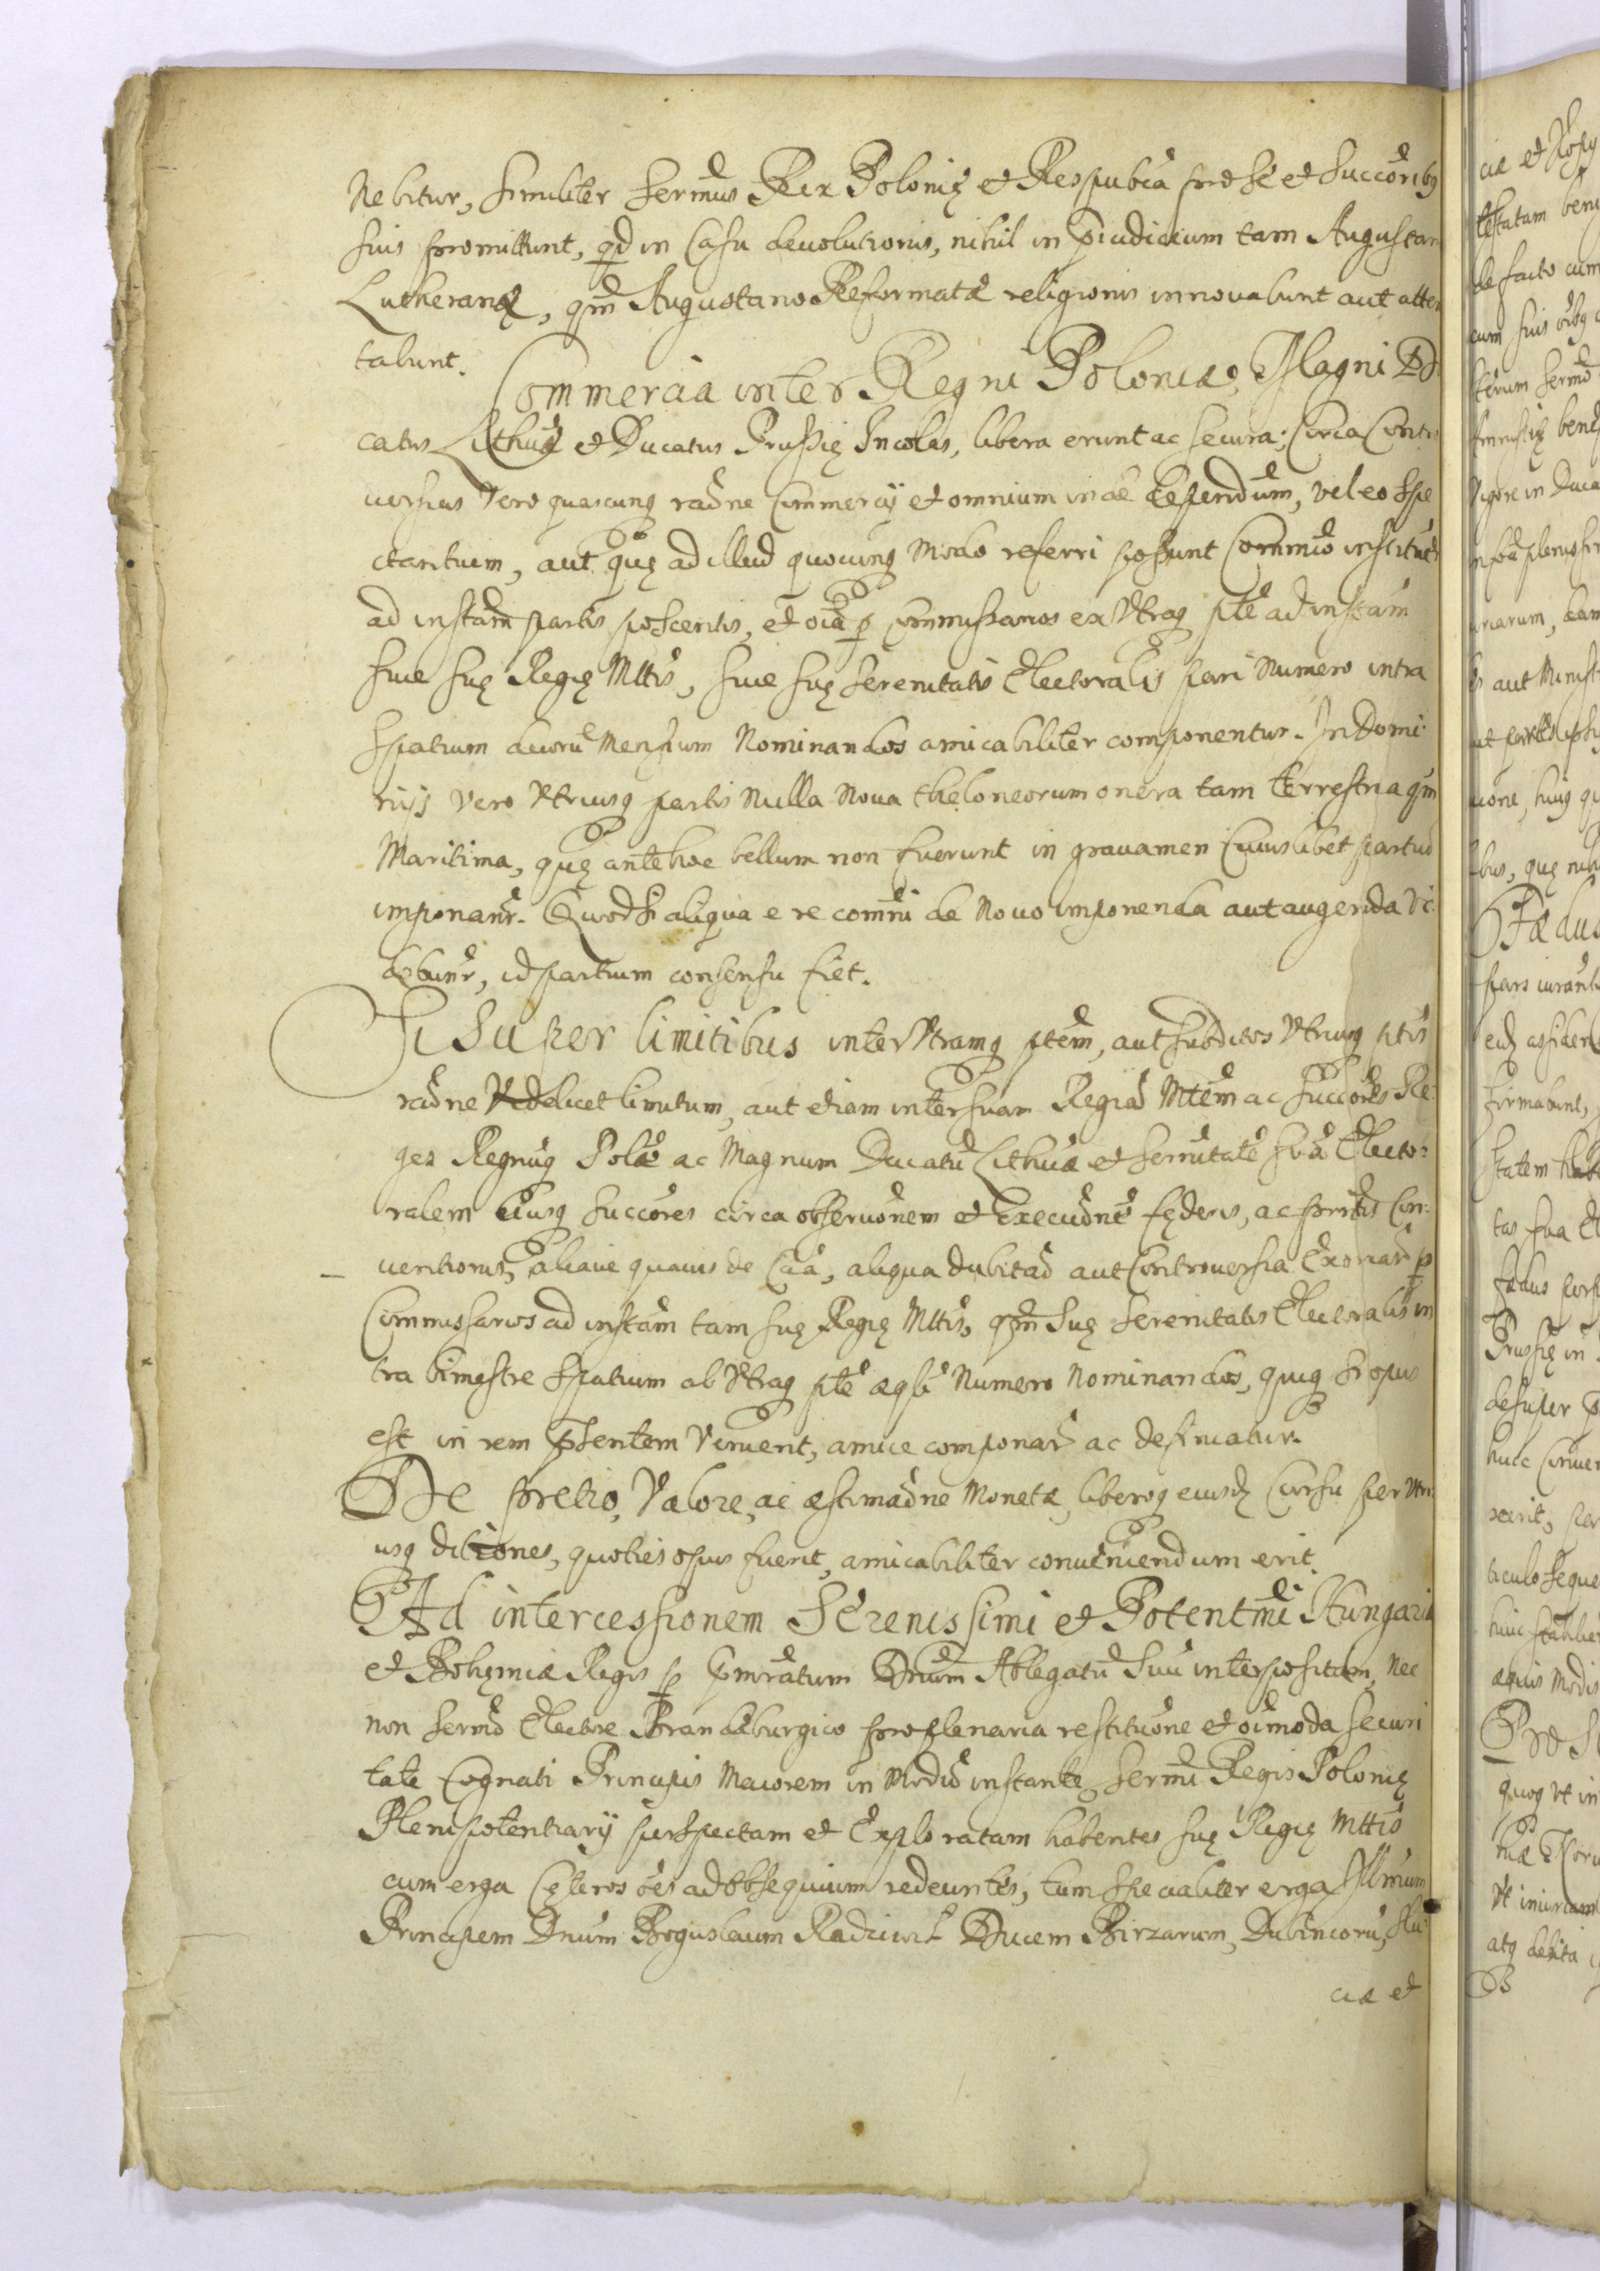 nebitur, similiter sermus Rex Polonię et Respubca pro se et Succoribq
suis promittunt, qd in Casu devolutionis, nihil in piudicium tam Augustan
Lutheranæ, qm Augustano Reformatæ religionis innovabunt aut atten
tabunt.
Commercia inter Regni Poloniæ, Magni Du
catus Lithuæ et Ducatus Prussię Incolas, libera erunt ac secura; Circa Contro
versias vero quascunq raone Commercij et omnium inde dependum, vel eo spe
ctantium, aut quę ad illud quocunq modo referri possunt Commio instituet
ad instam partis poscentis, et oia p Commissarios ex Vtraq pte ad instam
sive suę Regię Mttis, sive suę Serenitatis Electoralis pari Numero intra
spatium duoru Mensium Nominandos amicabiliter componentur. In Domi
nijs vero Vtriusq partis Nulla Nova theloneorum onera tam terrestria qm
Maritima, quę ante hoc bellum non fuerunt in gravamen Cuiuslibet partiu
imponanr. Quod si aliqua e re comni de Novo imponenda aut augenda vi
debunr, id partium consensu fiet.
Si super limitibus inter Vtramq ptem, aut subditos Vtriusq ptis
raone Videlicet limitum, aut etiam inter suam Regia Mttem ac Succores Re
ges Regnuq Polæ ac Magnum Ducatu Lithuæ et Sernitate sua Electo:
ralem eiusq Succores circa observonem et Execuone fęderis, ac pntis Con:
ventionis, aliave quavis de Caa, aliqua dubitao aut Controversia Exoriar p
Commissarios ad instam tam suę Regię Mttis, qm Suę Serenitatis Electoralis in
tra bimestre spatium ab Vtraq pte æqli Numero Nominandos, quiq si opus
est in rem psentem Venient, amice componar ac definiatur.
De pretio, Valore, ac æstimaone Monetæ, liberoq eiusd Cursu per Vtri
usq ditiones, quoties opus fuerit, amicabiliter conveniendum erit.
Ad intercessionem Serenissimi et Potentmi Hungariæ
et Bohęmiæ Regis p pmoratum Dnum Ablegatu Suu interpositam, nec
non Sermo Electore Brandeburgico pro plenaria restituone et oimoda securi
tate Cognati Principis Maiorem in Modu instante, Sermi Regis Polonię
Plenipotentiarij perspectam et Exploratam habentes suę Regię Mttis
cum erga Cęteros oes ad obsequium redeuntes, tum specialiter erga Illmum
Principem Dnum Boguslaum Radziwil Ducem Birzarum, Dubincoru, Slu
ciæ et